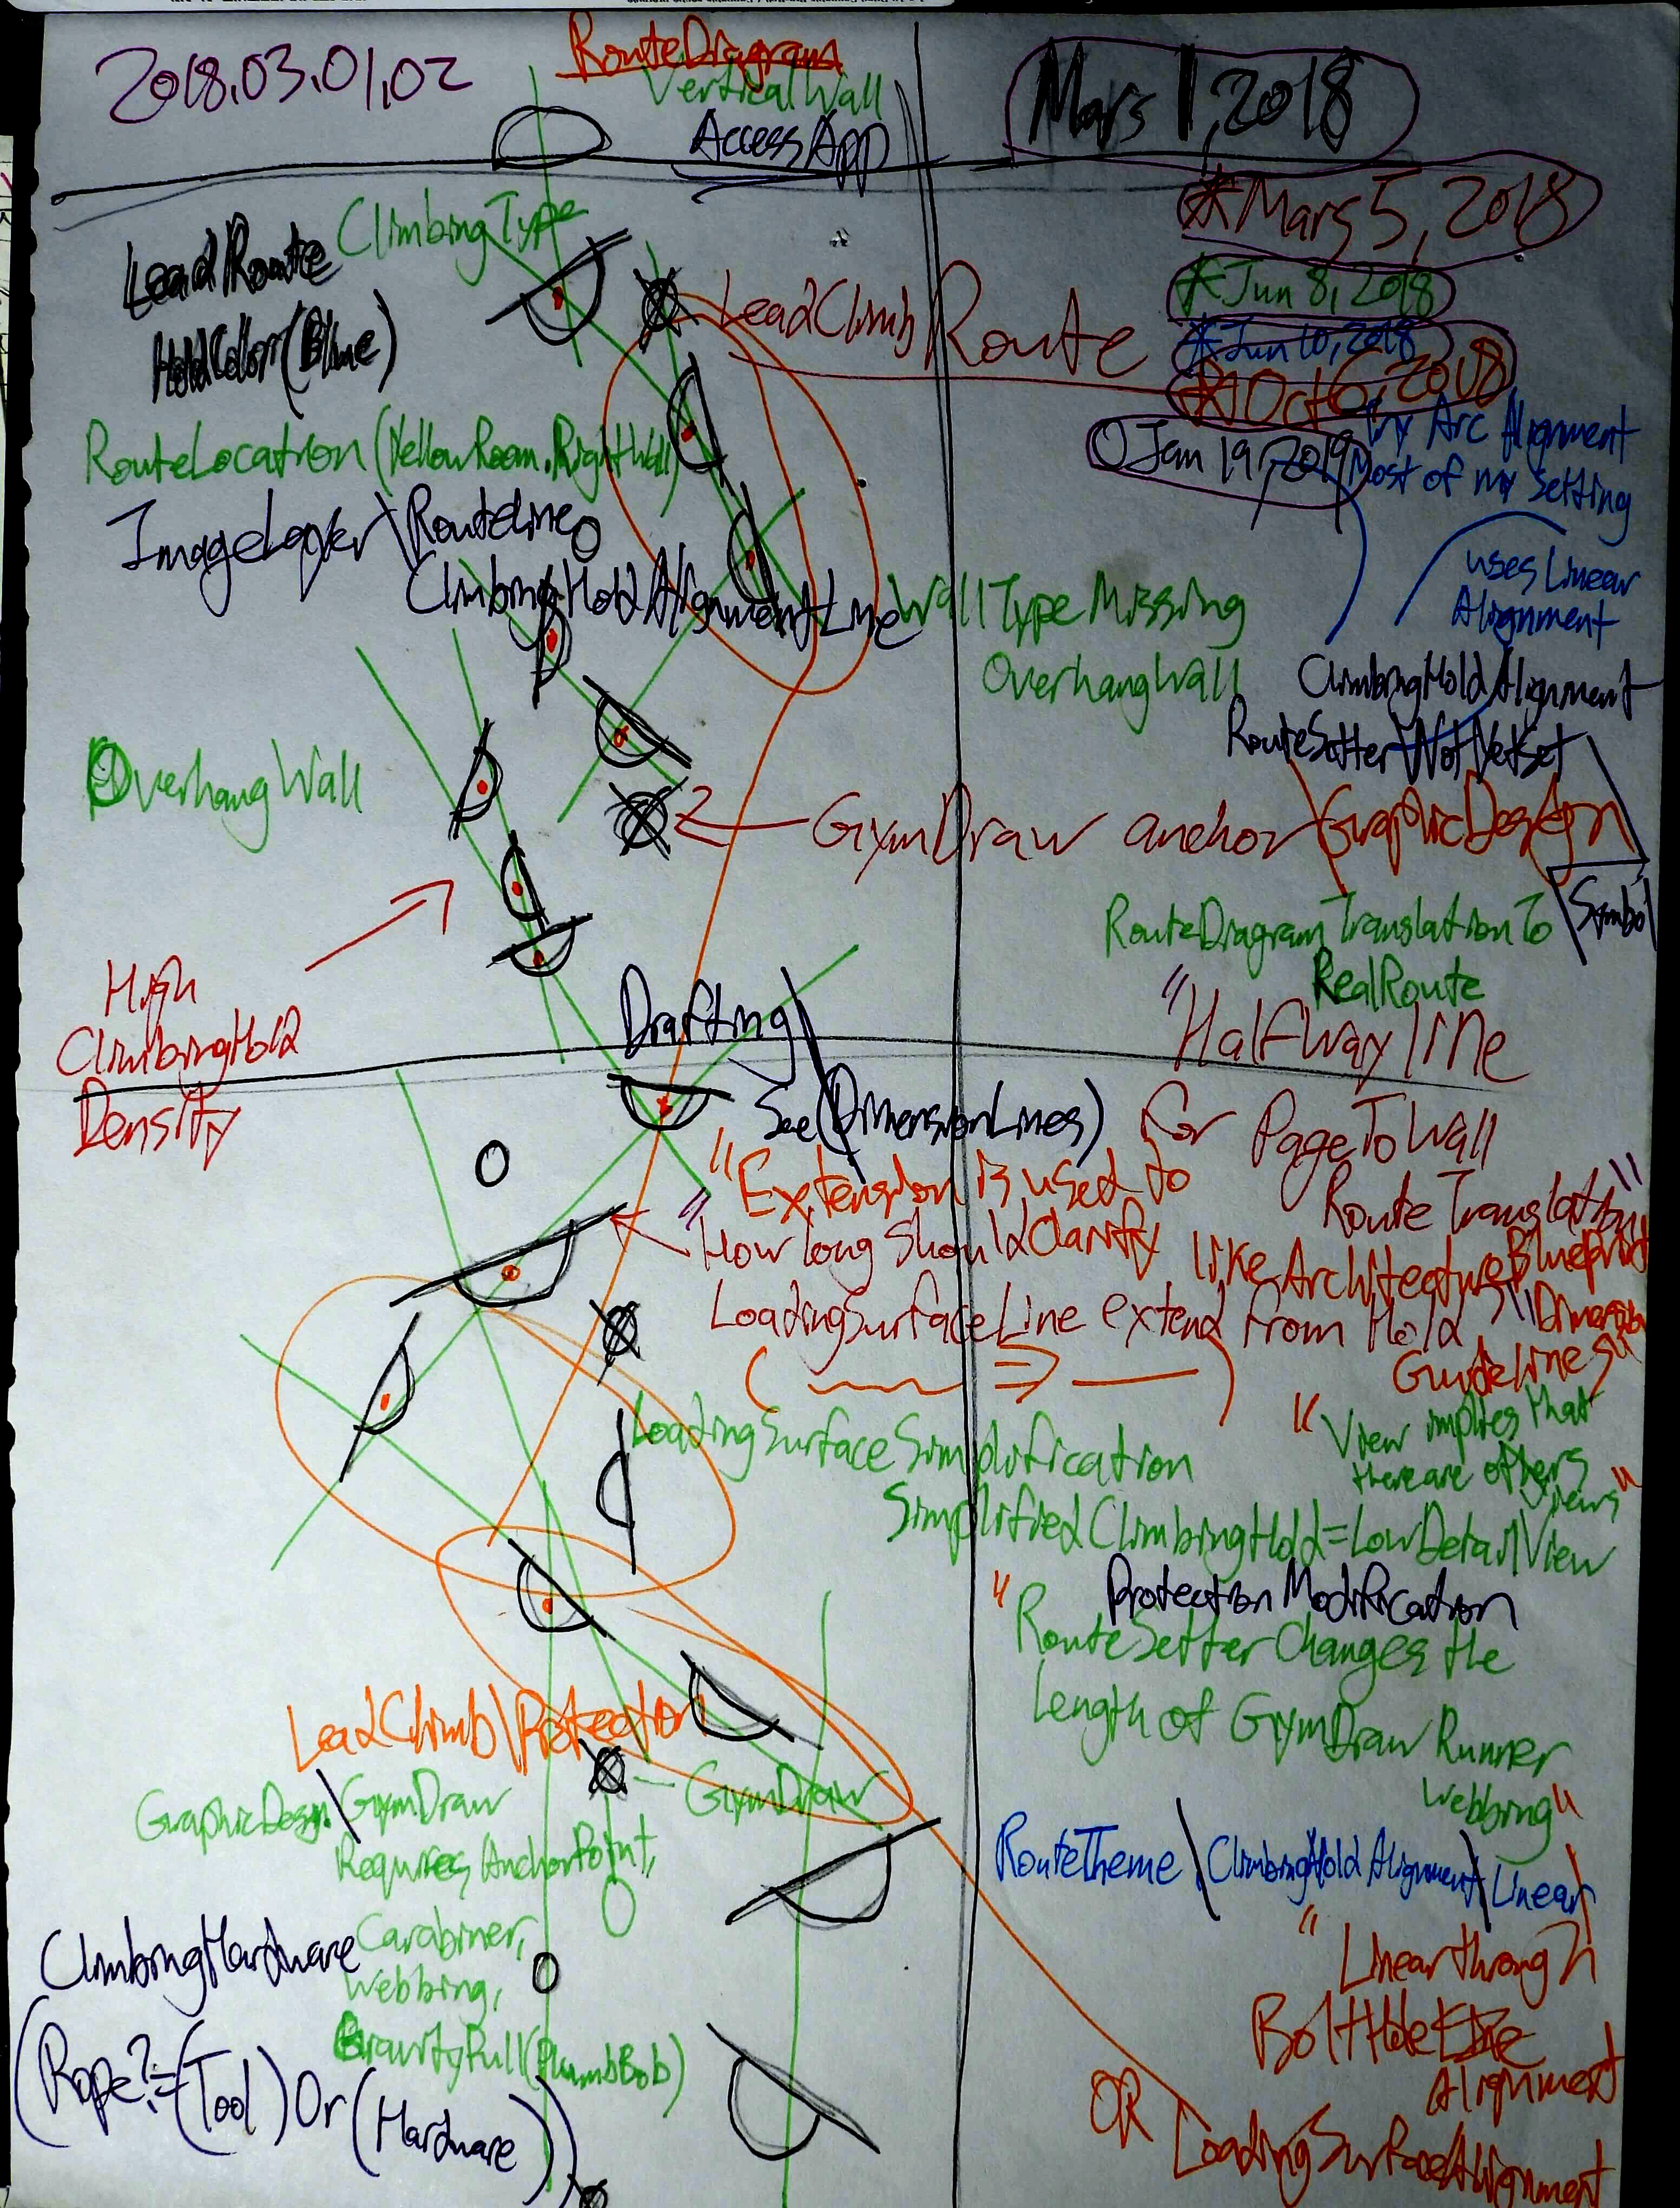 2018.03.01,02
RouteDiagram
VerticalWall
AccessApp
Mars 1, 2018
*Mars 5, 2018
*Jun 8, 2018
*Jun 10, 2018
*Oct 6, 2018
Jan 19, 2019
Try Arc Alignment
Most of my Setting
uses Linear
Alignment
ClimbingType
LeadRoute
HoldColor(Blue)
LeadClimb\Route
RouteLocation(YellowRoom.RightWall)
ImageLayer\RouteLine
ClimbingHoldAlignmentLine
WallTypeMissing
OverhangWall
ClimbingHoldAlignment
RouteSetter\NotYetSet
OverhangWall
GymDraw anchor
GraphicDesign
\Symbol
RouteDiagramTranslationTo
RealRoute
High
ClimbingHold
Density
"Halfway line
for PageToWall
Route Translation"
Drafting\
See(DimensionLines)
"Extension is used to
Clarify
like Architecture Blueprint
"Dimension
Guidelines"
"How long should
LoadingSurfaceLine extend from Hold
LoadingSurfaceSimplification
"View implies that
there are others
views"
SimplifiedClimbingHold=LowDetail\View
ProtectionModification
"RouteSetter Changes the
Length of GymDraw Runner
Webbing"
LeadClimb\Protection
GraphicDesign\GymDraw
GymDraw
Requires AnchorPoint,
Carabiner,
Webbing,
GravityPull(PlumbBob)
RouteTheme\ClimbingHoldAlignment\Linear
ClimbingHardware
(Rope?=(Tool)Or(Hardware))
"Linear through
BoltHole
Alignment
OR LoadingSurfaceAlignment